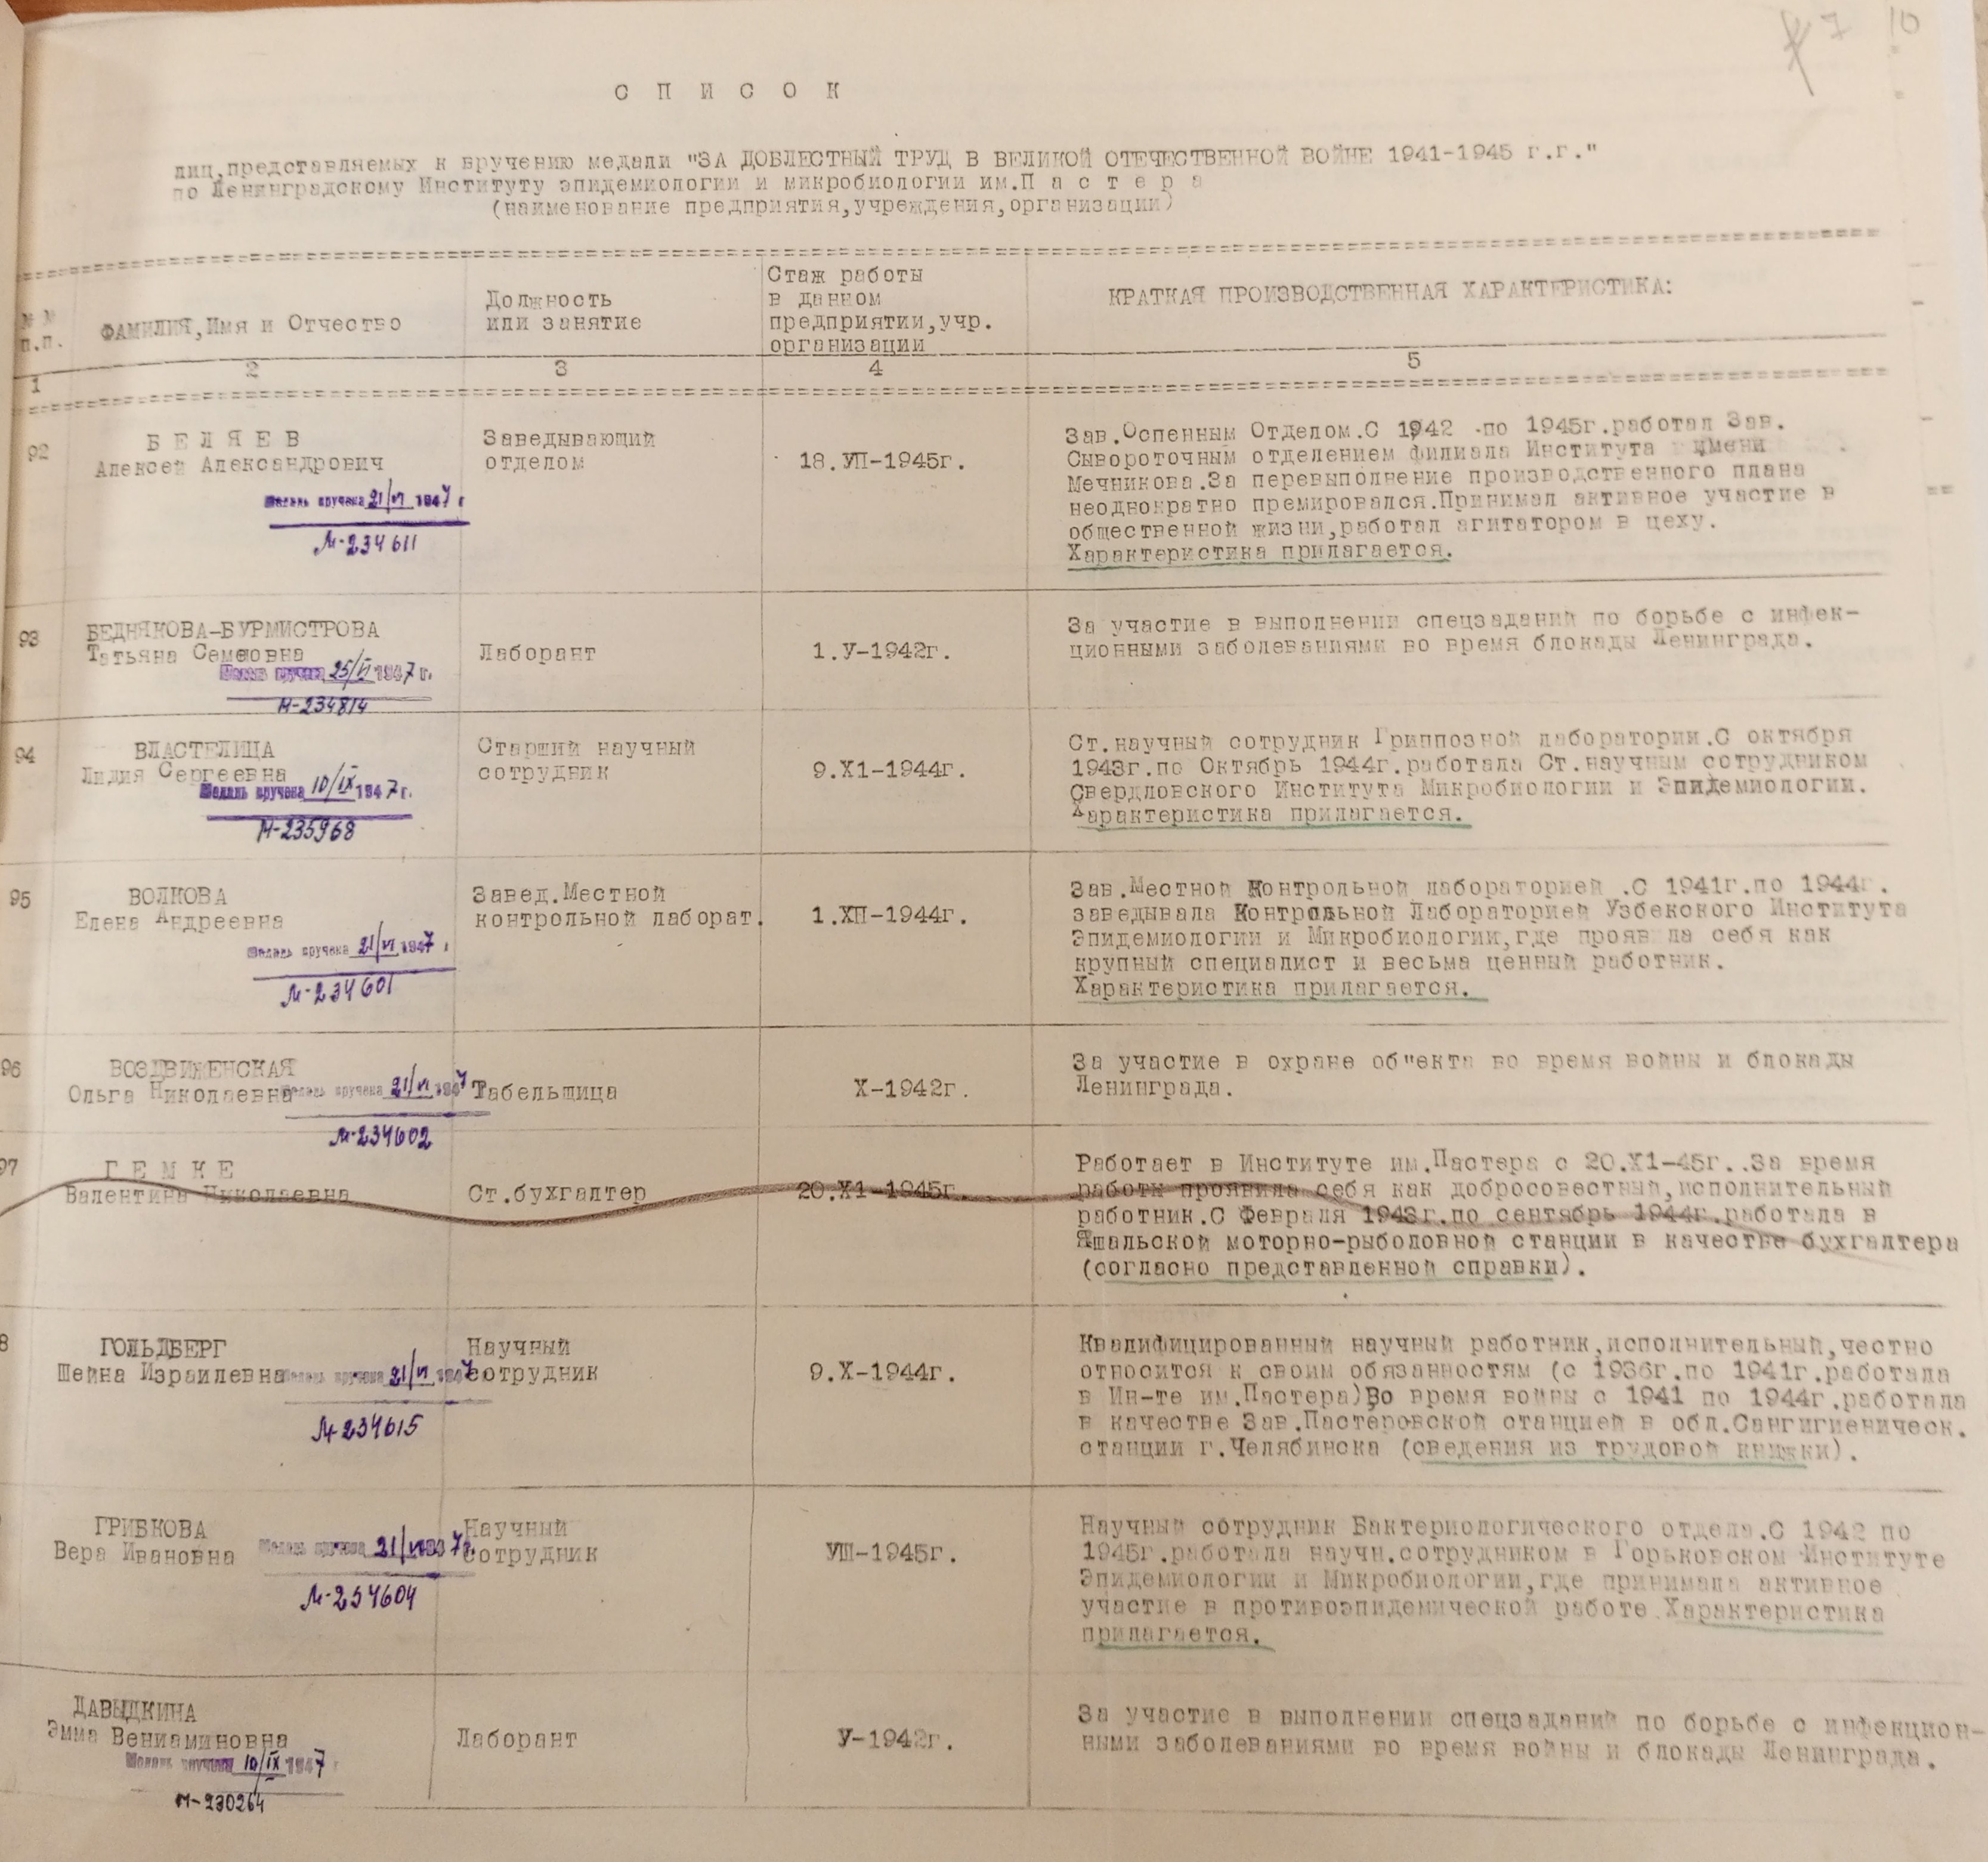 7 10
С П И С О К
лиц,представляемых к вручению медали "ЗА ДОБЛЕСТНЫЙ ТРУД В ВЕЛИКОЙ ОТЕЧЕСТВЕННОЙ ВОЙНЕ 1941-1945 г.г."
по Ленинградскому Институту эпидемиологии и микробиологии им.П а с т е р а
(наименование предприятия,учреждения,организации)
№ №
п.п.
ФАМИЛИЯ,Имя и Отчество
Должность
или занятие
Стаж работы
в данном
предприятии,учр.
организации
КРАТКАЯ ПРОИЗВОДСТВЕННАЯ ХАРАКТЕРИСТИКА:
1 2 3 4 5
92
Б Е Л Я Е В
Алексей Александрович
Медаль вручена 21/VI 1947 г
М-234611
Заведывающий
отделом
18.УП-1945г.
Зав.Оспенным Отделом.С 1942 по 1945г.работал Зав.
Сывороточным отделением филиала Института имени
Мечникова.За перевыполнение производственного плана
неоднократно премировался.Принимал активное участие в
общественной жизни,работал агитатором в цеху.
Характеристика прилагается.
93
БЕДНЯКОВА-БУРМИСТРОВА
Татьяна Семеновна
Медаль вручена 25/VI 1947 г.
М-234814
Лаборант
1.У-1942г.
За участие в выполнении спецзаданий по борьбе с инфек-
ционными заболеваниями во время блокады Ленинграда.
94
ВЛАСТЕЛИЦА
Лидия Сергеевна
Медаль вручена 10/IX 1947 г.
М-235968
Старший научный
сотрудник
9.Х1-1944г.
Ст.научный сотрудник Гриппозной лаборатории.С октября
1943г.по Октябрь 1944г.работала Ст.научным сотрудником
Свердловского Института Микробиологии и Эпидемиологии.
Характеристика прилагается.
95
ВОЛКОВА
Елена Андреевна
Медаль вручена 21/VI 1947 г
М-234601
Завед.Местной
контрольной лаборат.
1.ХП-1944г.
Зав.Местной Контрольной лабораторией .С 1941г.по 1944г.
заведывала Контрольной Лабораторией Узбекского Института
Эпидемиологии и Микробиологии,где проявила себя как
крупный специалист и весьма ценный работник.
Характеристика прилагается.
96
ВОЗДВИЖЕНСКАЯ
Ольга Николаевна
Медаль вручена 21/VI 1947
М-234602
Табельщица
Х-1942г.
За участие в охране об"екта во время войны и блокады
Ленинграда.
97
Г Е М К Е
Валентина Николаевна
Ст.бухгалтер
20.Х1-1945г.
Работает в Институте им.Пастера с 20.Х1-45г..За время
работы проявила себя как добросовестный,исполнительный
работник.С Февраля 1943г.по сентябрь 1944г.работала в
Яшальской моторно-рыболовной станции в качестве бухгалтера
(согласно представленной справки).
8
ГОЛЬДБЕРГ
Шейна Израилевна
Медаль вручена 21/VI 1947
М-234615
Научный
сотрудник
9.Х-1944г.
Квалифицированный научный работник,исполнительный,честно
относится к своим обязанностям (с 1936г.по 1941г.работала
в Ин-те им.Пастера)Во время войны с 1941 по 1944г.работала
в качестве Зав.Пастеровской станцией в обл.Сангигиеническ.
станции г.Челябинска (сведения из трудовой книжки).
ГРИБКОВА
Вера Ивановна
Медаль вручена 21/VI 1947 г.
М-234604
Научный
сотрудник
УШ-1945г.
Научный сотрудник Бактериологического отдела.С 1942 по
1945г.работала научн.сотрудником в Горьковском Институте
Эпидемиологии и Микробиологии,где принимала активное
участие в противоэпидемической работе.Характеристика
прилагается.
ДАВЫДКИНА
Эмма Вениаминовна
Медаль вручена 10/IX 1947
М-230264
Лаборант
У-1942г.
За участие в выполнении спецзаданий по борьбе с инфекцион-
ными заболеваниями во время войны и блокады Ленинграда.